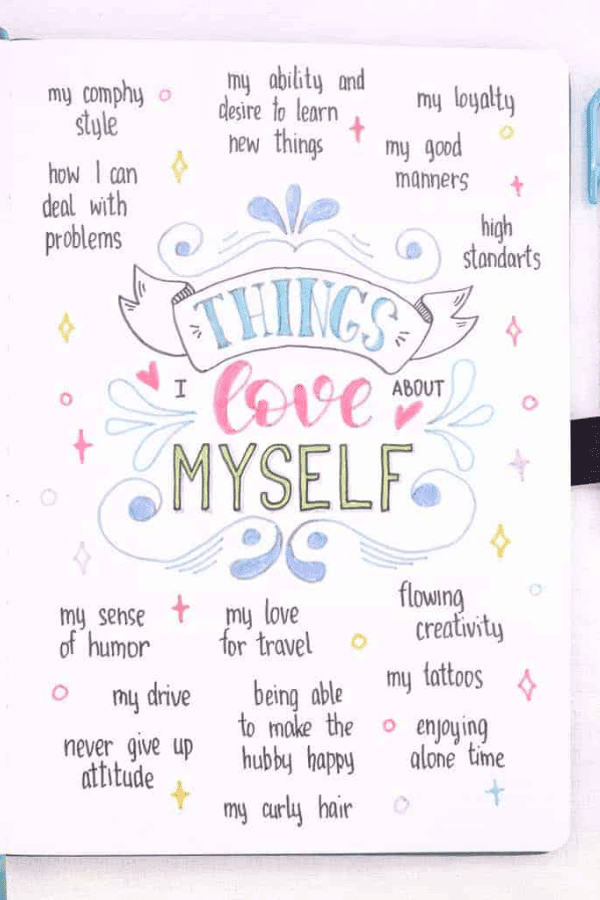 my comphy
style
my ability and
desire to learn
new things
my loyalty
my good
manners
how I can
deal with
problems
high
standarts
THINGS
I love ABOUT
MYSELF
my sense
of humor
my love
for travel
flowing
creativity
my tattoos
my drive
being able
to make the
hubby happy
enjoying
alone time
never give up
attitude
my curly hair